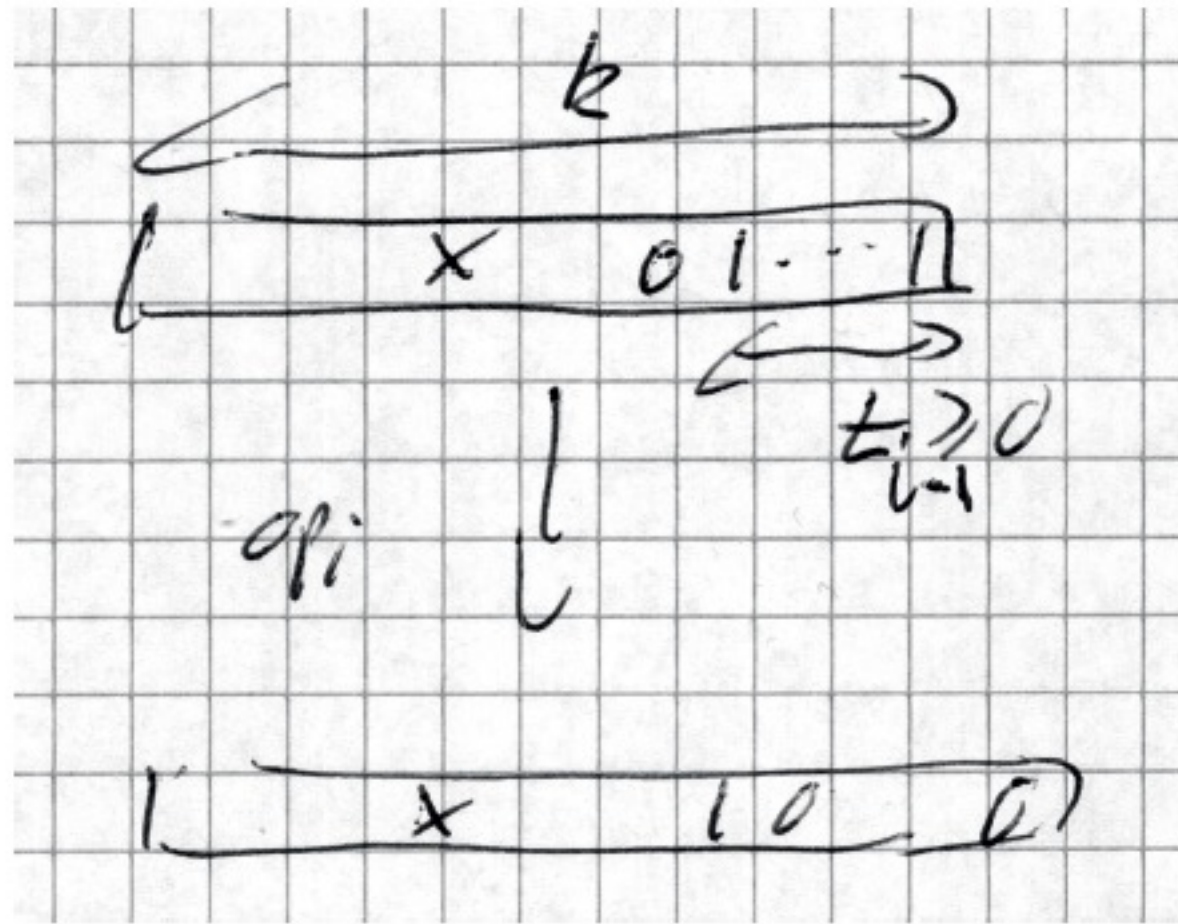 k
x 0 1 ... 1
t_{i-1} ≥ 0
op_i
x 1 0 0